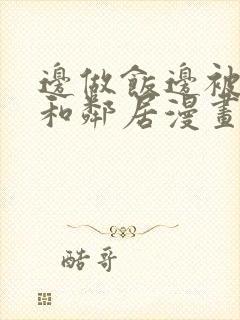 邊做飯邊被
和鄰居漫畫
酷哥